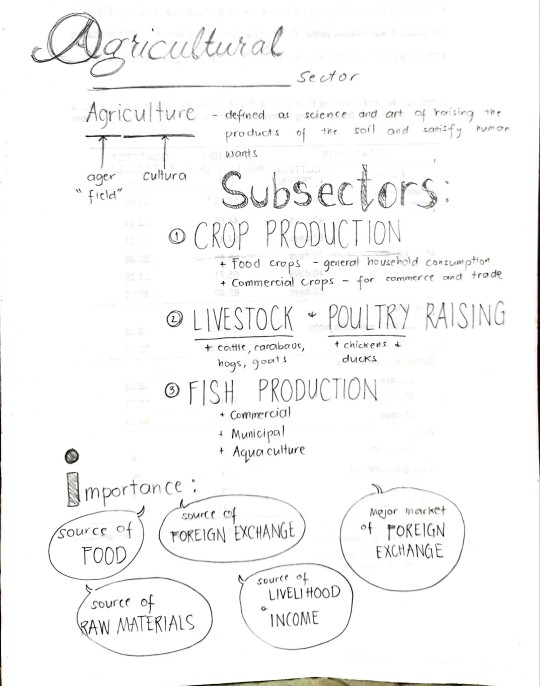 Agricultural
sector
Agriculture - defined as science and art of raising the
products of the soil and satisfy human
wants
ager cultura
"field"
Subsectors:
① CROP PRODUCTION
+ Food crops - general household consumption
+ Commercial Crops - for commerce and trade
② LIVESTOCK + POULTRY RAISING
+ cattle, carabaos, + chickens +
hogs, goats ducks
③ FISH PRODUCTION
+ Commercial
+ Municipal
+ Aquaculture
importance:
source of
FOOD
source of
FOREIGN EXCHANGE
Mejor market
of FOREIGN
EXCHANGE
source of
RAW MATERIALS
source of
LIVELIHOOD
&
INCOME